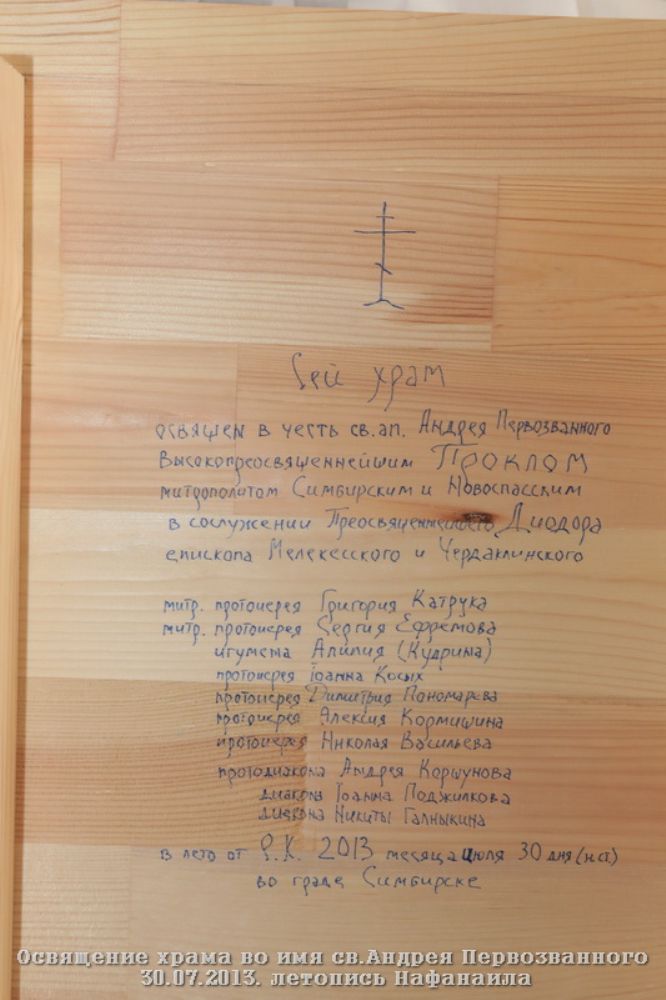 Сей храм
освящен в честь св.ап. Андрея Первозванного
Высокопреосвященнейшим Проклом
митрополитом Симбирским и Новоспасским
в сослужении Преосвященнейшего Диодора
епископа Мелекесского и Чердаклинского
митр. протоиерея Григория Катрука
митр. протоиерея Сергия Ефремова
игумена Алипия (Кудрина)
протоиерея Іоанна Косых
протоиерея Димитрия Пономарева
протоиерея Алексия Кормишина
протоиерея Николая Васильева
протодиакона Андрея Коршунова
диакона Іоанна Поджилкова
диакона Никиты Галныкина
в лето от Р.Х. 2013 месяца июля 30 дня (н.ст)
во граде Симбирске
Освящение храма во имя св.Андрея Первозванного
30.07.2013. летопись Нафанаила